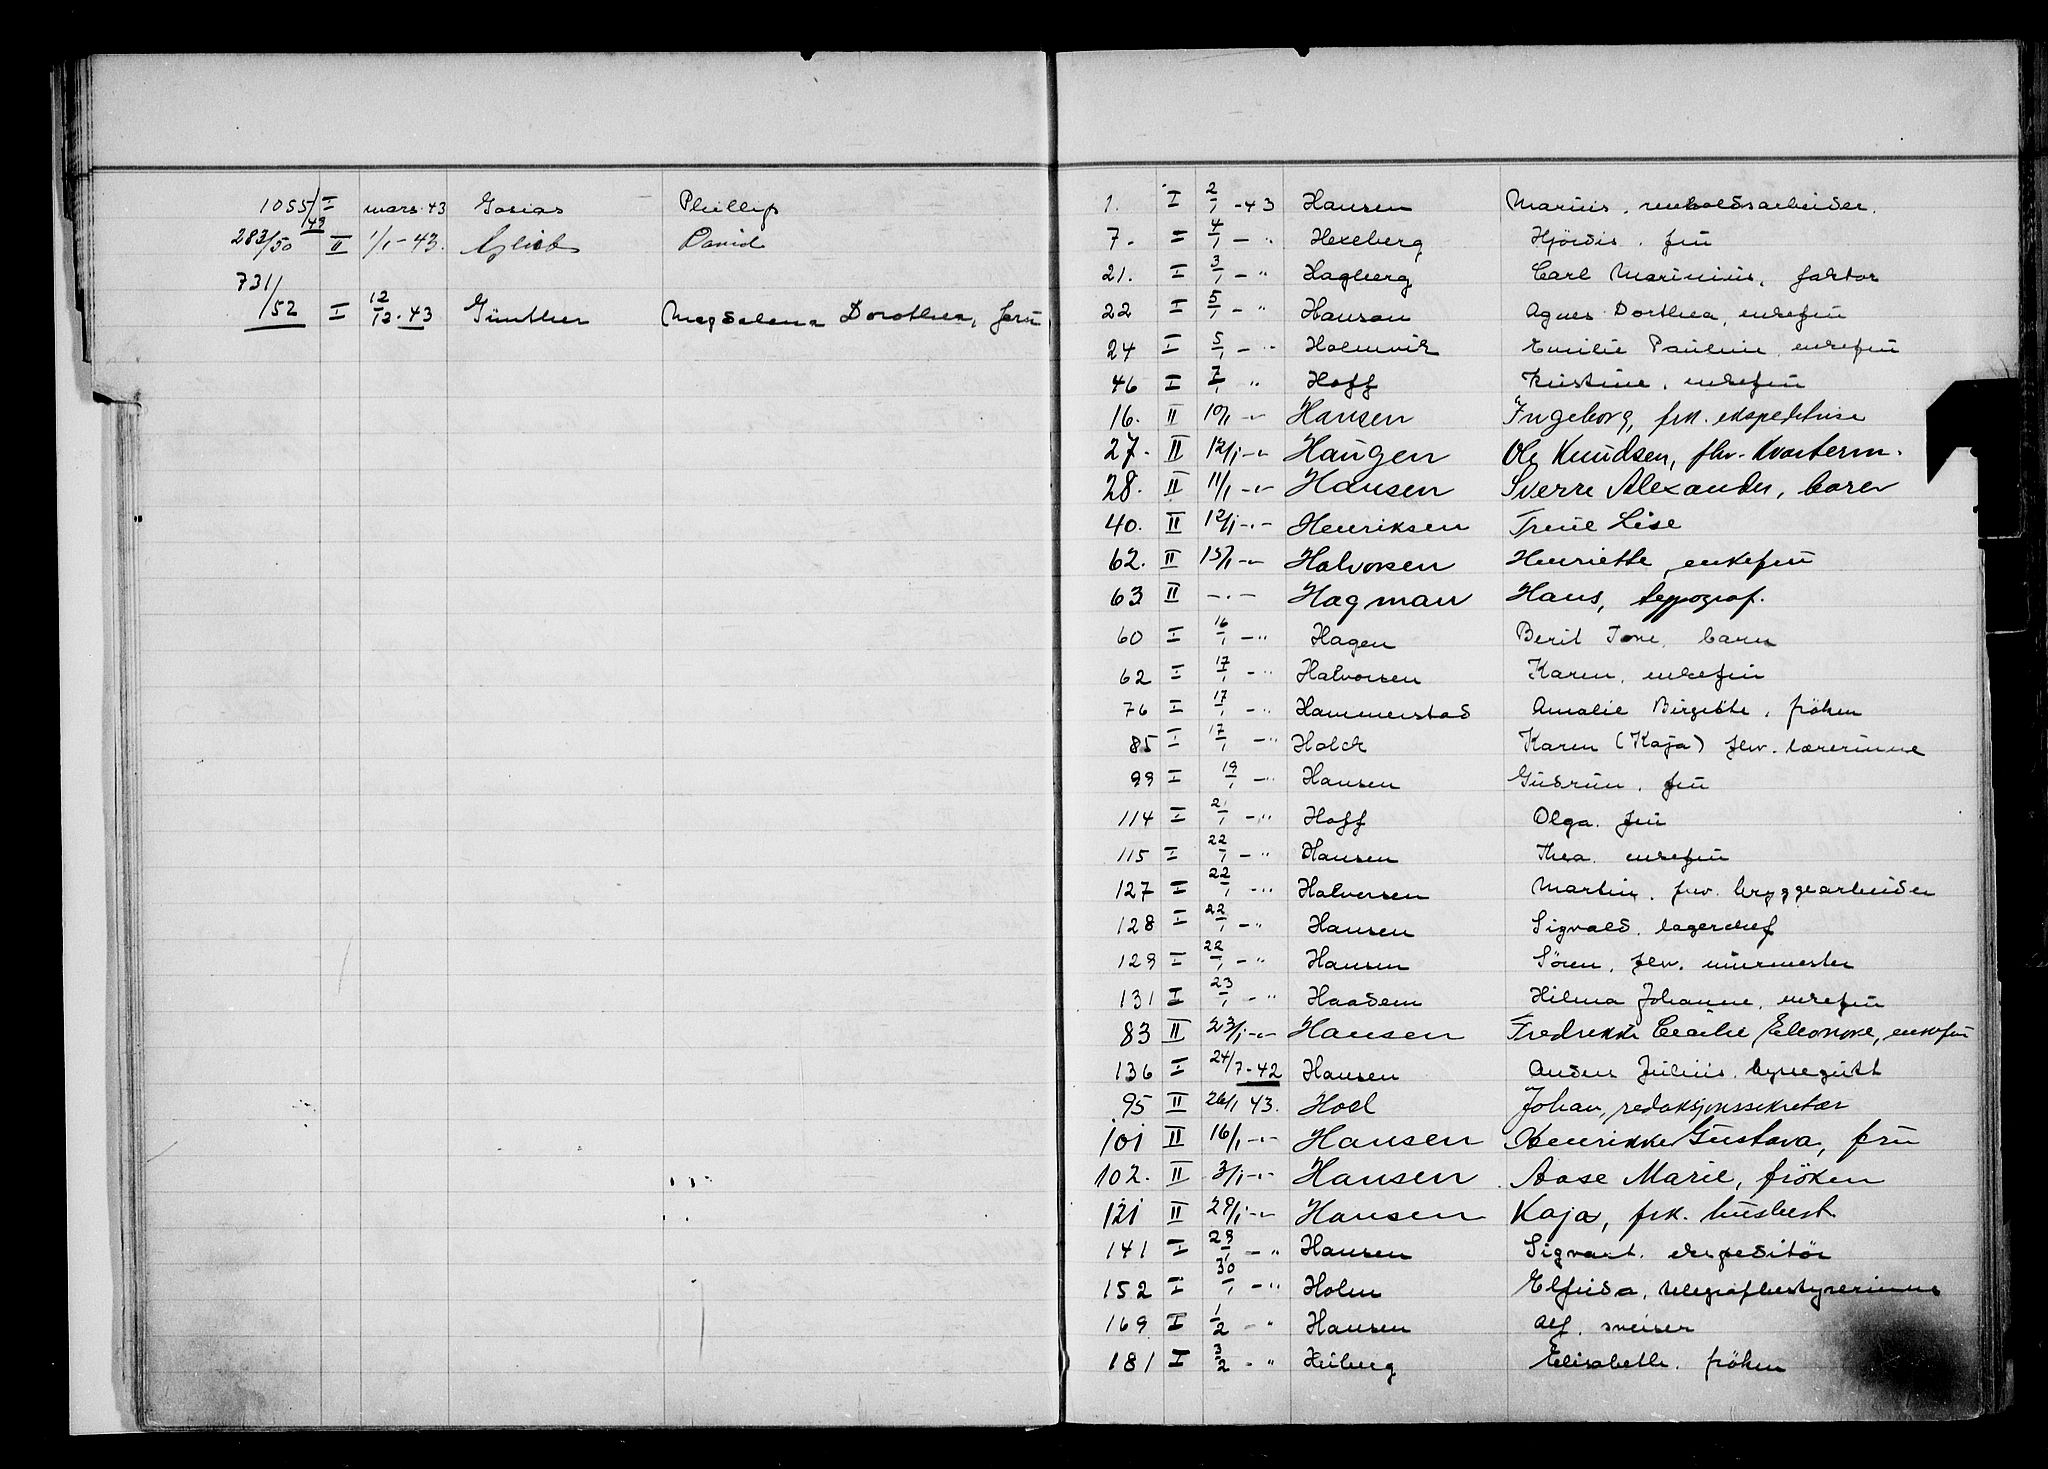 1055/49 I mars-43 Gosias Phillip
283/50 II 1/1-43. David
731/52 I 12/12-43 Günther Magdalena Dorothea, fru
1. I 2/1 -43 Hansen Marius, renholdsarbeider.
7. I 4/1 - " Hexeberg Hjördis, fru
21. I 3/1 - " Hagberg Carl Marinius, faktor
22 I 5/1 - " Hanson Agnes Dorthea, enkefru
24 I 5/1 - " Holmvik Emilie Pauline, enkefru
46 I 7/1 " Hoff Kristine, enkefru
16. II 10/1 -"- Hansen Ingeborg, frk. ekspeditrise
27. II 12/1 -"- Haugen Ole Knudsen, fhv. kvarterm.
28. II 11/1 -"- Hansen Sverre Alexander, barn
40. II 12/1 -"- Henriksen Trine Lise
62. II 15/1 -"- Halvorsen Henriette, enkefru
63 II -"- Hagman Hans, typograf.
60 I 16/1 - " Hagen Beril Tone, barn
62 I 17/1 - " Halvorsen Karen, enkefru
76 I 17/1 - " Hammerstad Amalie Birgitte, fröken
85 I 17/1 - " Holck Karen (Kaja) fhv. lærerinne
99 I 19/1 - " Hansen Gudrun, fru
114 I 21/1 - " Hoff Olga, fru
115 I 22/1 - " Hansen Thea, enkefru
127 I 22/1 - " Halvorsen Martin, fhv. bryggearbeider
128 I 22/1 - " Hansen Sigvald, lagerchef
129 I 22/1 - " Hansen Sören, fhv. murmester
131 I 23/1 - " Haadem Hilma Johanne, enkefru
83 II 23/1 -"- Hansen Fredrikke Cecilie Eleonore, enkefru
136 I 24/7-42 Hansen Anders Julius, byssegutt
95 II 26/1 43. Hoel Johan, redaksjonssekretær
101 II 16/1 -"- Hansen Henrikke Gustava, fru
102. II 3/1 -"- Hansen Aase Marie, fröken
121 II 29/1 -"- Hansen Kaja, frk. husbest
141 I 29/1 - " Hansen Sigvart, ekspeditör
152 I 30/1 - " Holm Elfrida, telegrafbestyrerinne
169 I 1/2 - " Hansen Alf, sveiser
181 I 3/2 - " Heiberg Elisabeth, fröken